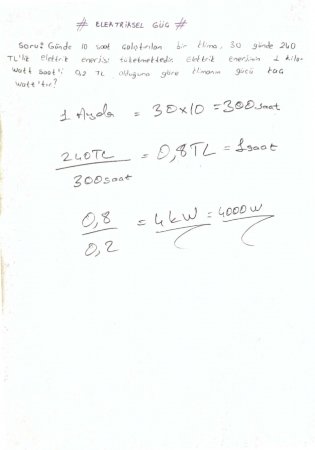 # ELEKTRİKSEL GÜÇ #
Soru: Günde 10 saat çalıştırılan bir klima, 30 günde 240
TL'lik elektrik enerjisi tüketmektedir. Elektrik enerjisinin 1 kilo-
watt saat'i 0,2 TL olduğuna göre klimanın gücü kaç
watt'tır?
1 Ayda = 30x10 = 300 saat
240TL
300saat
= 0,8TL = 1saat
0,8
0,2
= 4kW = 4000W